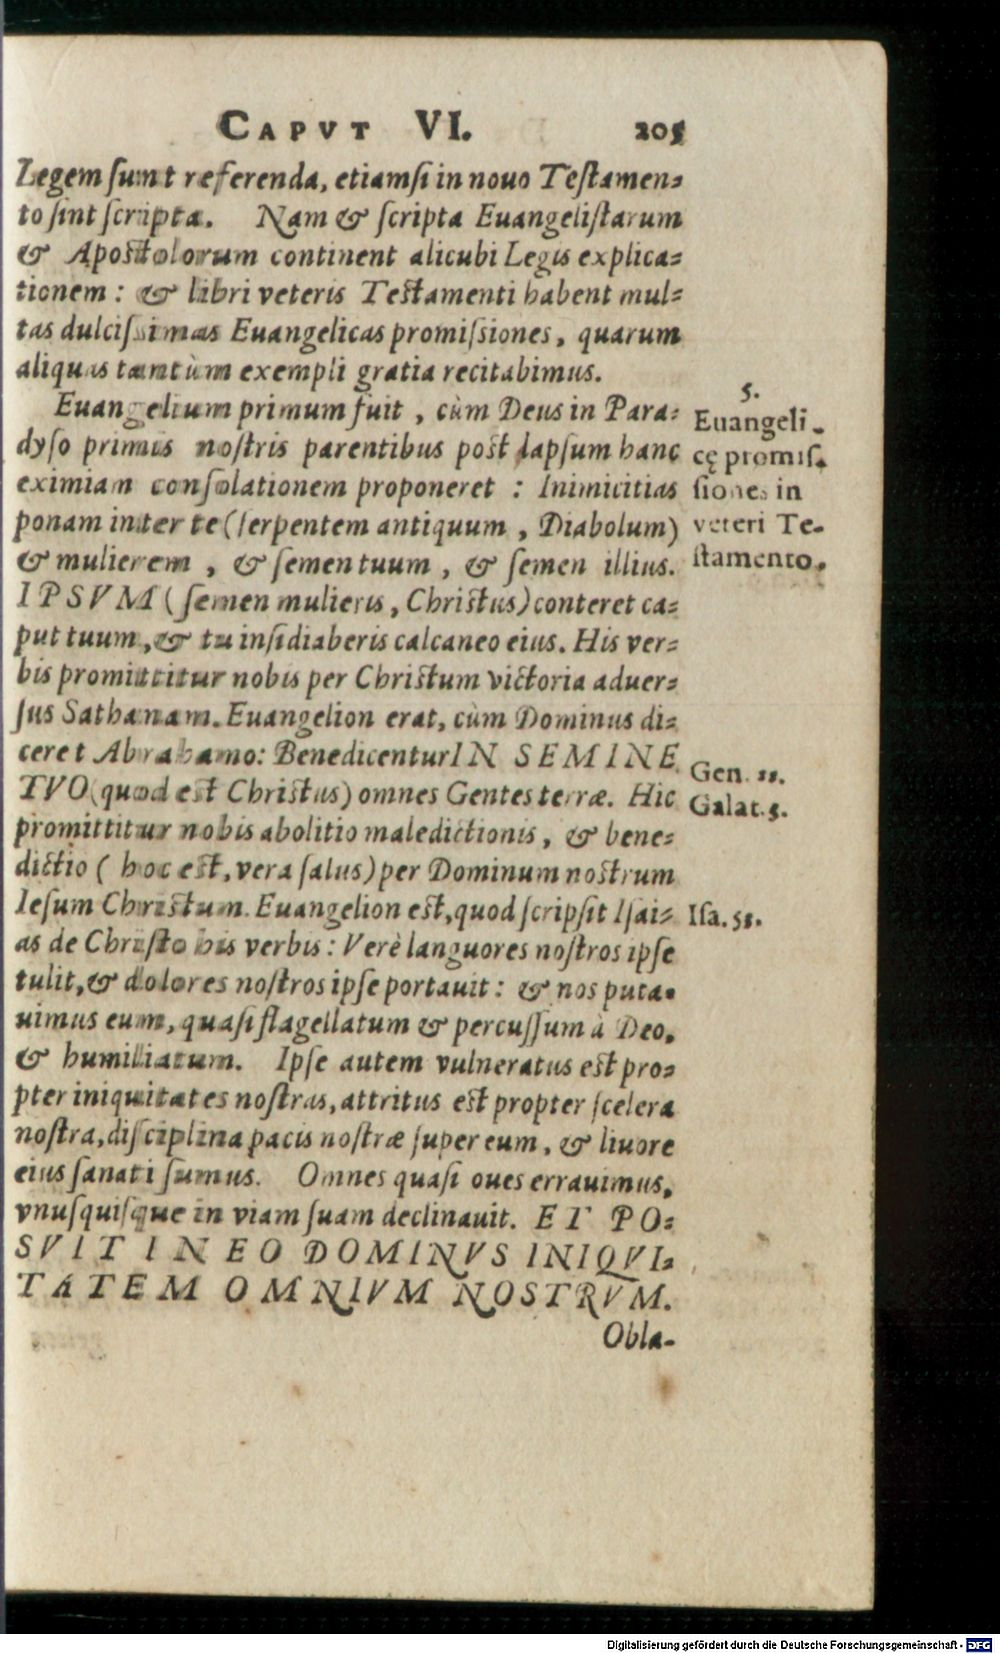 CAPVT VI. 205
Legem sunt referenda, etiamsi in nouo Testamen-
to sint scripta. Nam & scripta Euangelistarum
& Apostolorum continent alicubi Legis explica-
tionem: & libri veteris Testamenti habent mul-
tas dulcissimas Euangelicas promissiones, quarum
aliquas tantùm exempli gratia recitabimus.
Euangelium primum fuit, cùm Deus in Para-
dyso primis nostris parentibus post lapsum hanc
eximiam consolationem proponeret: Inimicitias
ponam inter te (serpentem antiquum, Diabolum)
& mulierem, & semen tuum, & semen illius.
IPSVM (semen mulieris, Christus) conteret ca-
put tuum, & tu insidiaberis calcaneo eius. His ver-
bis promittitur nobis per Christum victoria aduer-
sus Sathanam. Euangelion erat, cùm Dominus di-
ceret Abrahamo: Benedicentur IN SEMINE
TVO (quod est Christus) omnes Gentes terræ. Hic
promittitur nobis abolitio maledictionis, & bene-
dictio (hoc est, vera salus) per Dominum nostrum
Iesum Christum. Euangelion est, quod scripsit Isai-
as de Christo his verbis: Verè languores nostros ipse
tulit, & dolores nostros ipse portauit: & nos puta-
uimus eum, quasi flagellatum & percussum à Deo,
& humiliatum. Ipse autem vulneratus est pro-
pter iniquitates nostras, attritus est propter scelera
nostra, disciplina pacis nostræ super eum, & liuore
eius sanati sumus. Omnes quasi oues errauimus,
vnusquisque in viam suam declinauit. ET PO-
SVIT IN EO DOMINVS INIQVI-
TATEM OMNIVM NOSTRVM.
Obla-
5.
Euangeli-
cę promis-
siones in
veteri Te-
stamento.
Gen. 22.
Galat. 3.
Isa. 53.
Digitalisierung gefördert durch die Deutsche Forschungsgemeinschaft - DFG